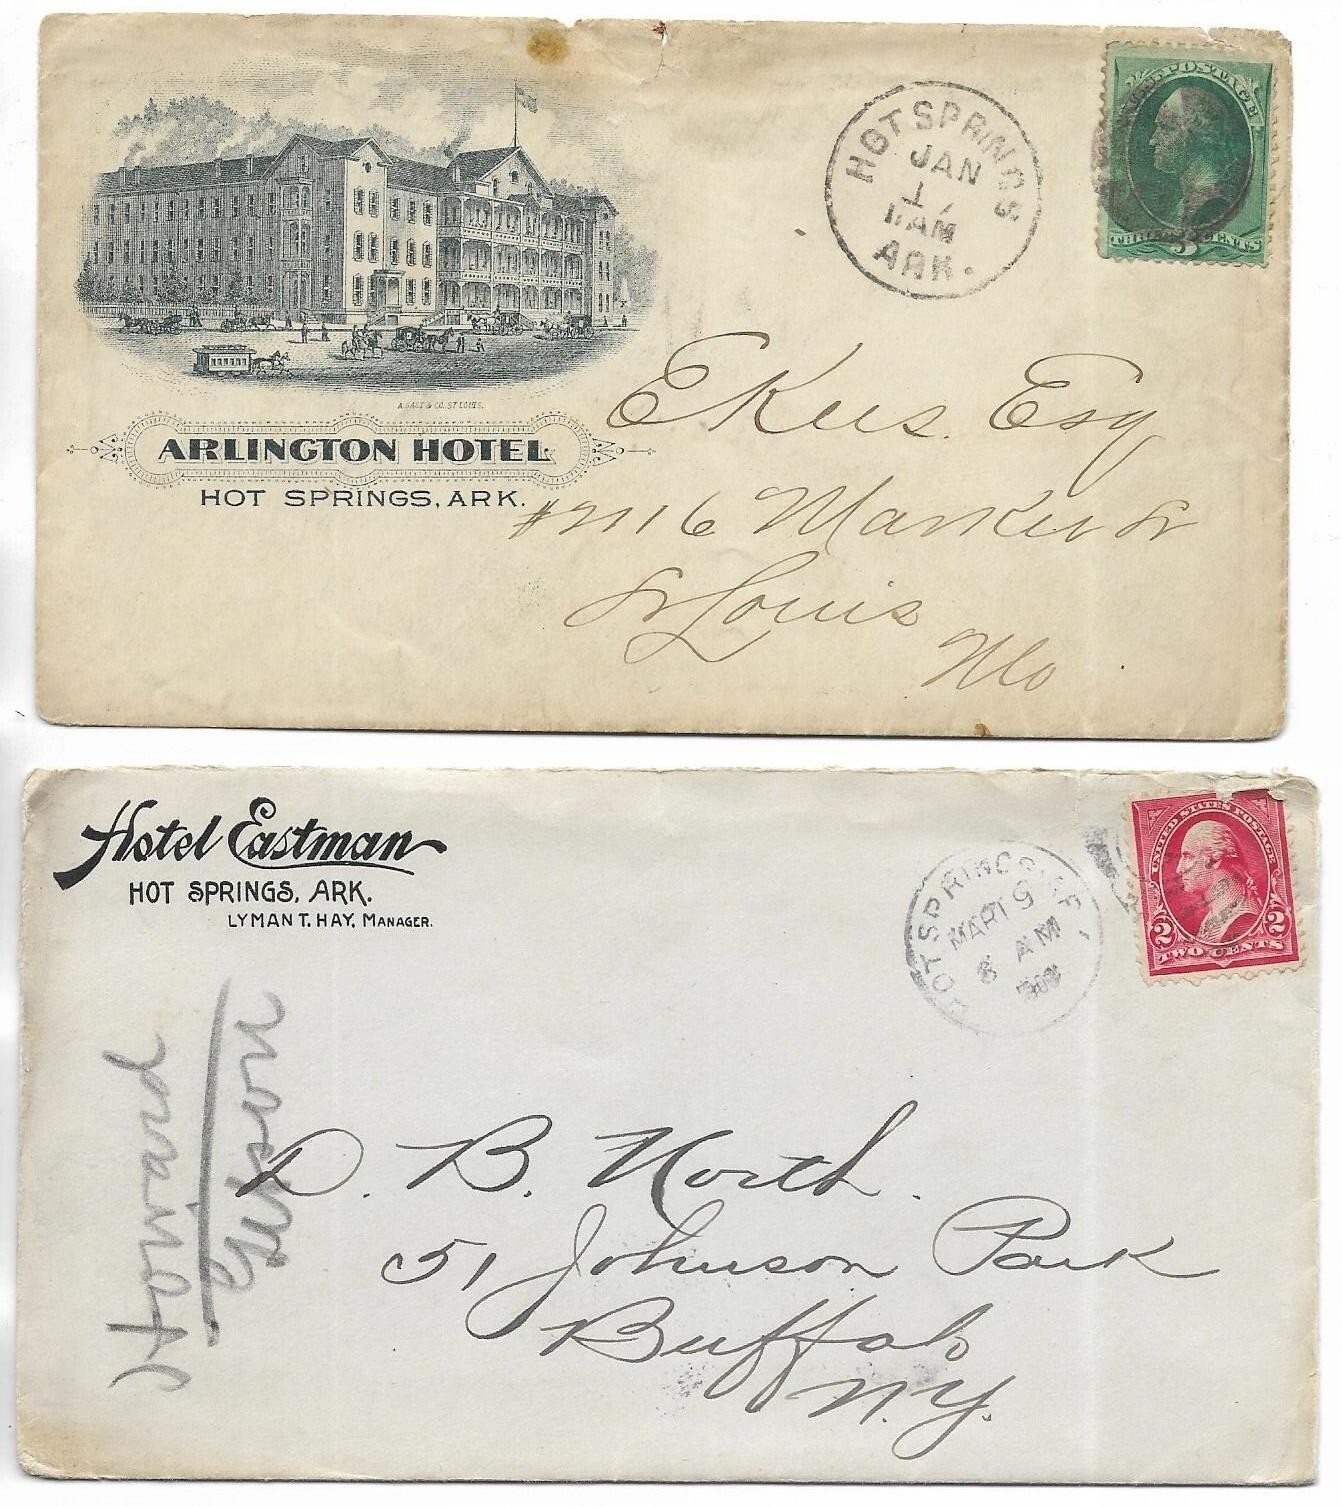 HOT SPRINGS
JAN
ARK.
POSTAGE
THREE 3 CENTS
A. GAST & CO. ST LOUIS.
ARLINGTON HOTEL
HOT SPRINGS, ARK.
E Kus. Esq
St Louis
Mo
Hotel Eastman
HOT SPRINGS, ARK.
LYMAN T. HAY, MANAGER.
HOT SPRINGS
MAR 19
8 AM
UNITED STATES POSTAGE
2 2
TWO CENTS
Howard
Gibson
D. B. North.
51 Johnson Park
Buffalo
N.Y.